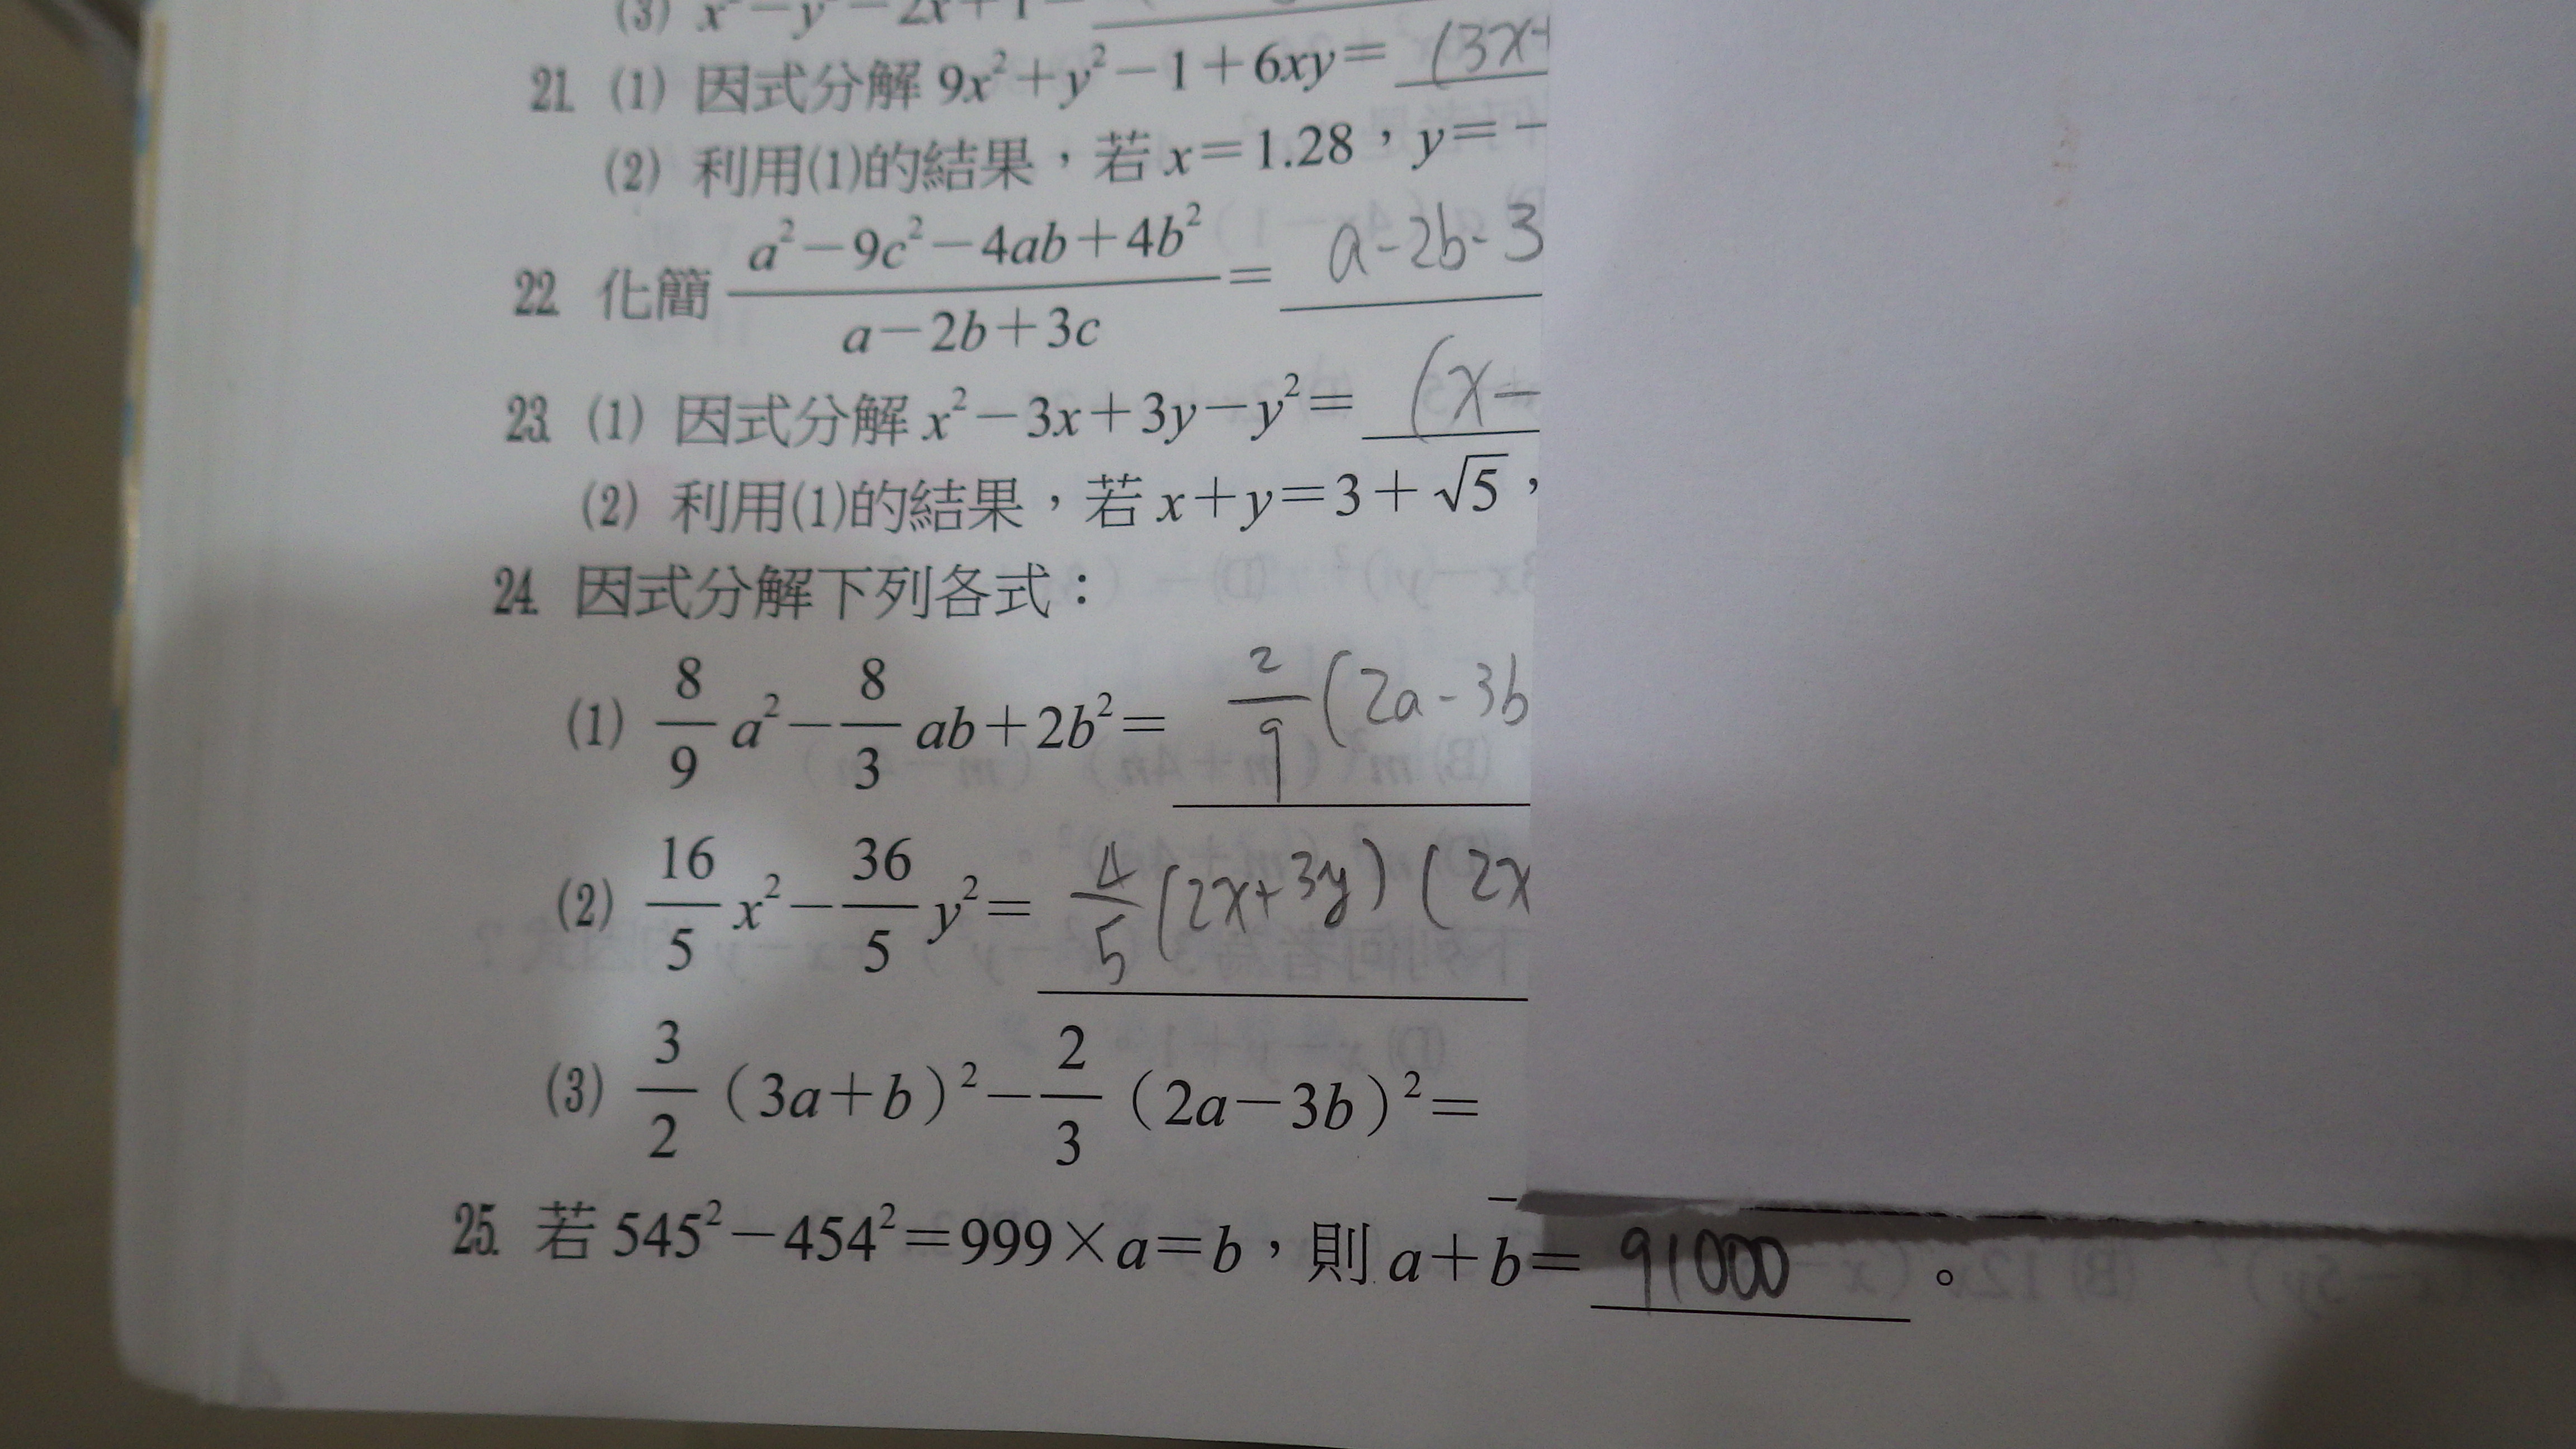 (3) x²-y²-2x+1=
21. (1) 因式分解 9x²+y²-1+6xy= (3x+
(2) 利用(1)的結果，若 x=1.28，y=-
22. 化簡 \frac{a²-9c²-4ab+4b²}{a-2b+3c} = a-2b-3
23. (1) 因式分解 x²-3x+3y-y²= (x-
(2) 利用(1)的結果，若 x+y=3+√5，
24. 因式分解下列各式：
(1) \frac{8}{9}a²-\frac{8}{3}ab+2b²= \frac{2}{9}(2a-3b
(2) \frac{16}{5}x²-\frac{36}{5}y²= \frac{4}{5}(2x+3y)(2x
(3) \frac{3}{2}(3a+b)²-\frac{2}{3}(2a-3b)²=
25. 若 545²-454²=999×a=b，則 a+b= 91000 。